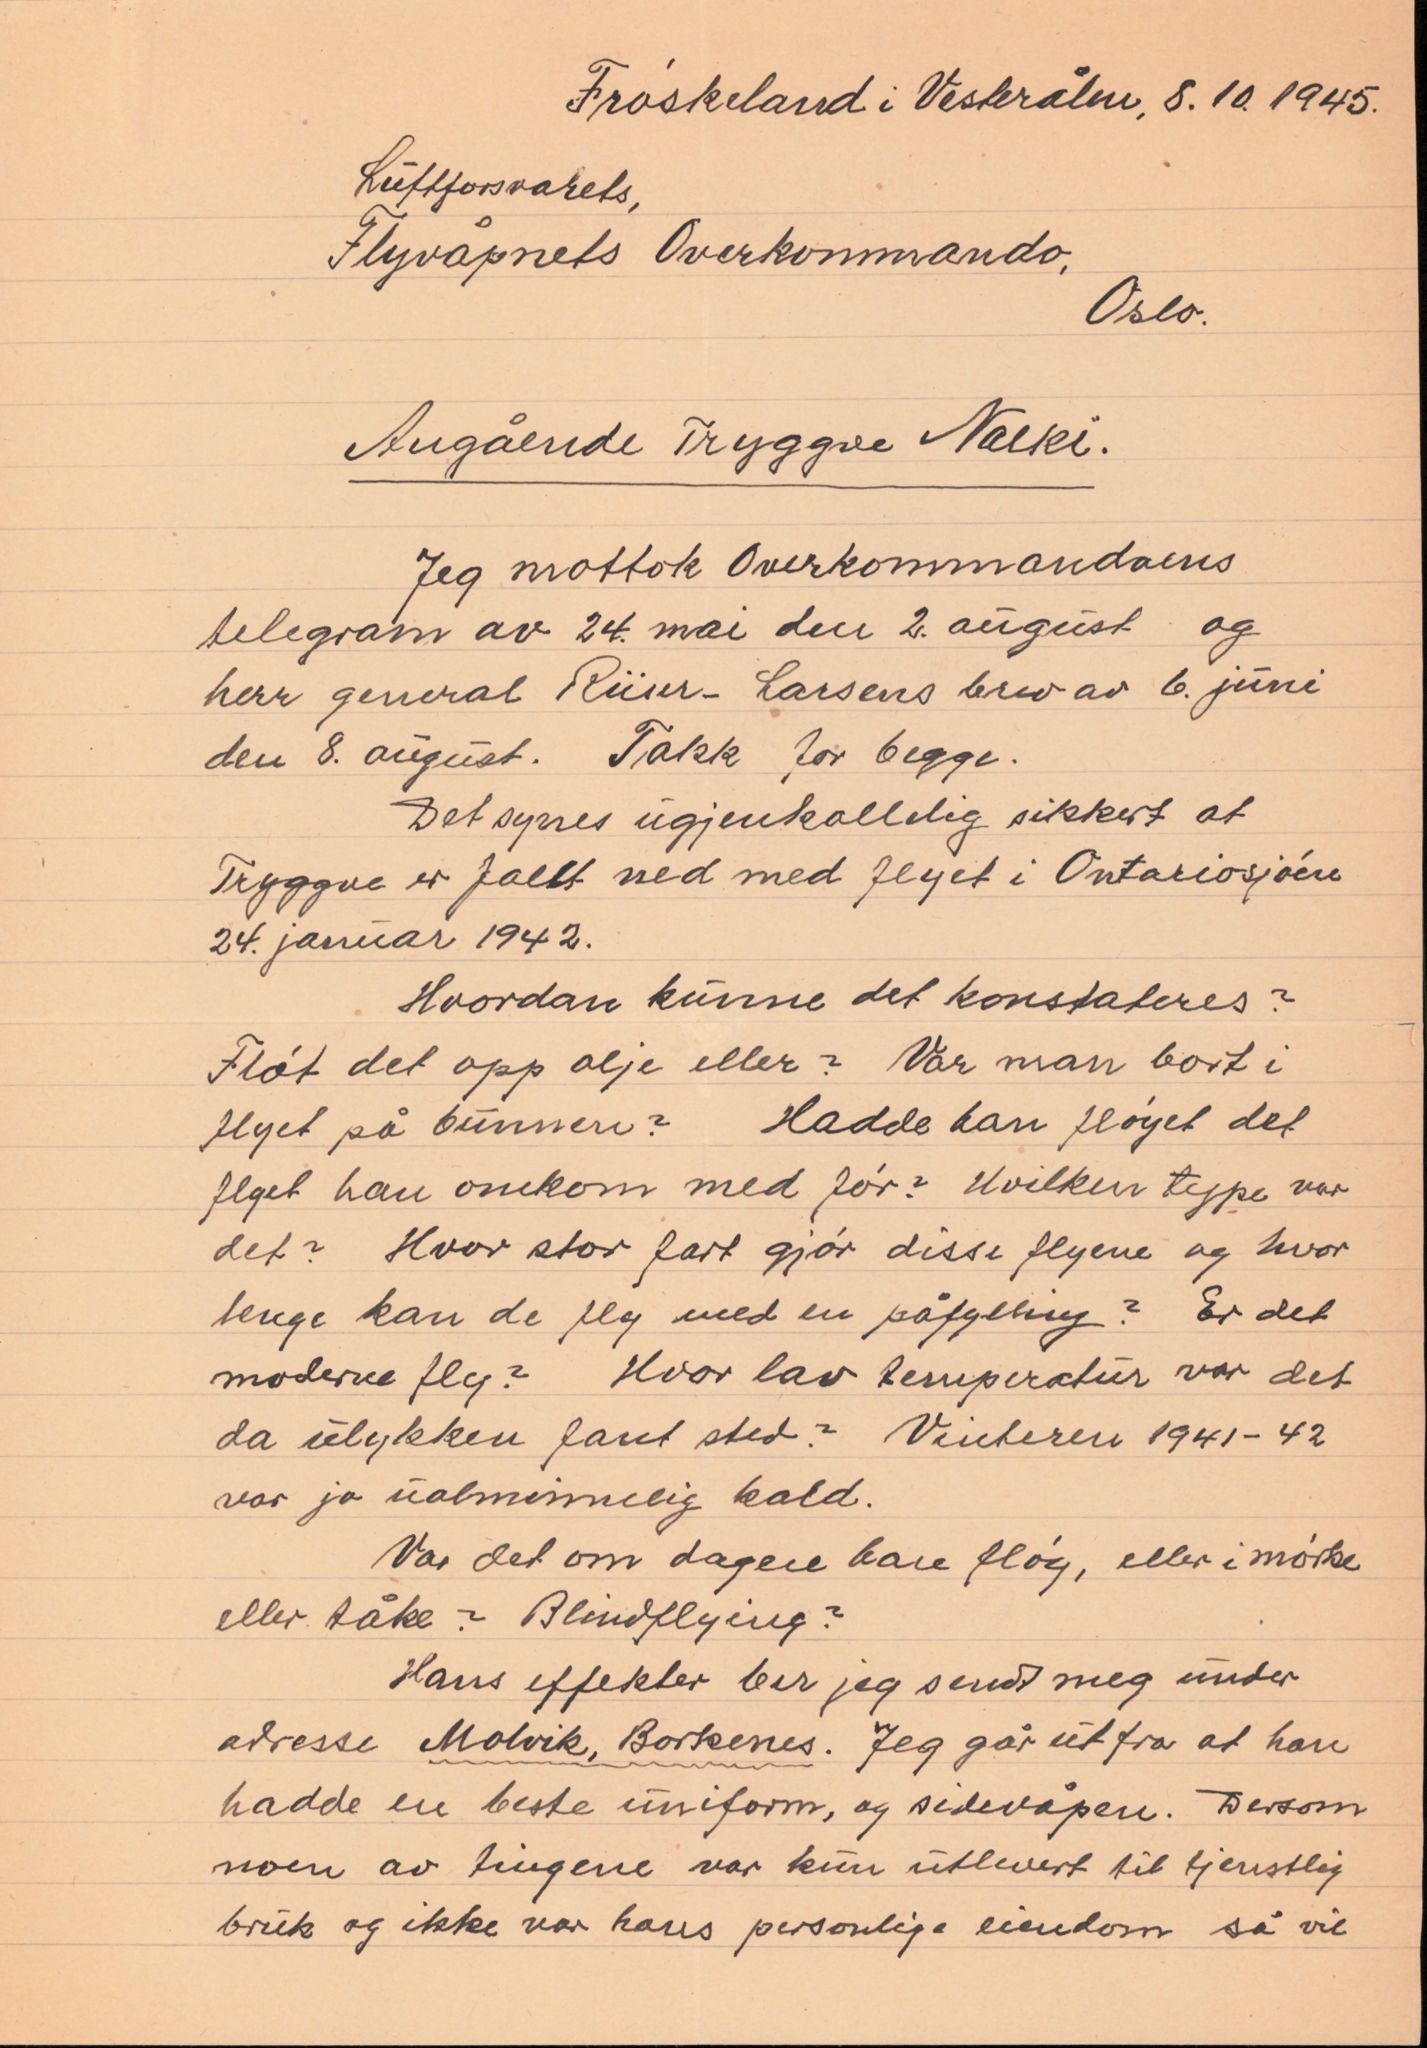 Fróskeland i Vesterålen, 8. 10. 1945.
Luftforsvarets,
Flyvåpnets Overkommando,
Oslo.
Angående Tryggve Nøkki.
Jeg mottok Overkommandoens
telegram av 24. mai den 2. august og
herr general Riiser-Larsens brev av 6. juni
den 8. august. Takk for begge.
Det synes ugjenkallelig sikkert at
Tryggve er fallt ned med flyet i Ontariosjóen
24. januar 1942.
Hvordan kunne det konstateres?
Flót det opp olje eller? Var man bort i
flyet på bunnen? Hadde han flóyet det
flyet han omkom med fór? Hvilken type var
det? Hvor stor fart gjór disse flyene og hvor
lenge kan de fly med en påfylling? Er det
moderne fly? Hvor lav temperatur var det
da ulykken fant sted? Vinteren 1941-42
var jo ualminnelig kald.
Var det om dagen han flóg, eller i mórke
eller tåke? Blindflying?
Hans effekter ber jeg sendt meg under
adresse Molvik, Borkenes. Jeg går ut fra at han
hadde en beste uniform, og sidevåpen. Dersom
noen av tingene var kun utlevert til tjenstlig
bruk og ikke var hans personlige eiendom så vil